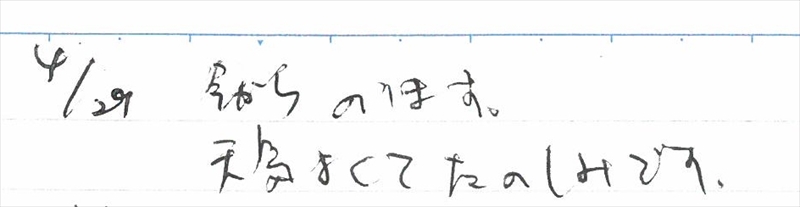 4/29 今からのります。
天気よくてたのしみです.